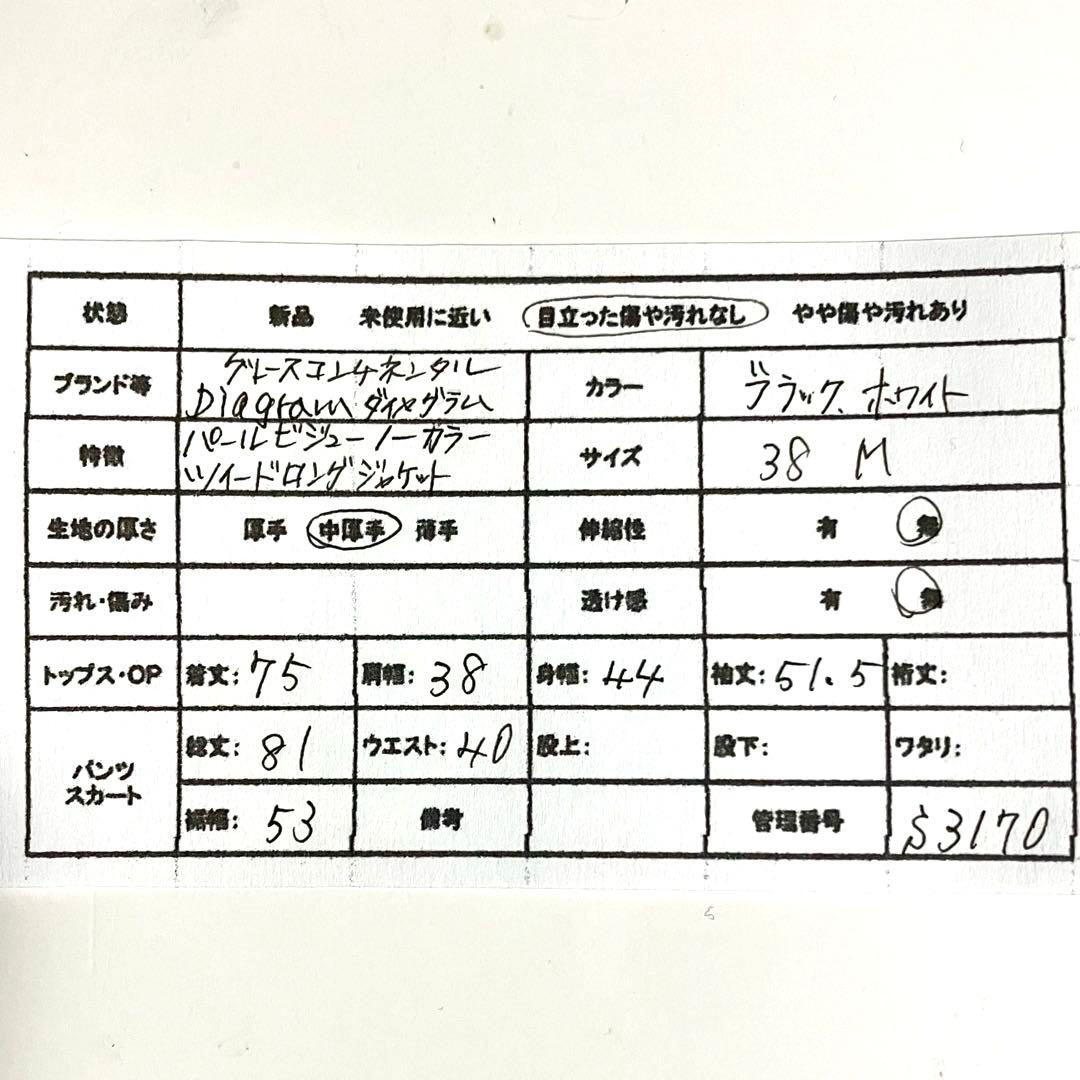 状態 新品 未使用に近い 目立った傷や汚れなし やや傷や汚れあり
ブランド等 グレースコンチネンタル
Diagram ダイヤグラム カラー ブラック、ホワイト
特徴 パールビジューノーカラー
ツイードロングジャケット サイズ 38 M
生地の厚さ 厚手 中厚手 薄手 伸縮性 有 無
汚れ・傷み 透け感 有 無
トップス・OP 着丈: 75 肩幅: 38 身幅: 44 袖丈: 51.5 裄丈:
パンツ
スカート
総丈: 81 ウエスト: 40 股上: 股下: ワタリ:
裾幅: 53 備考 管理番号 S3170